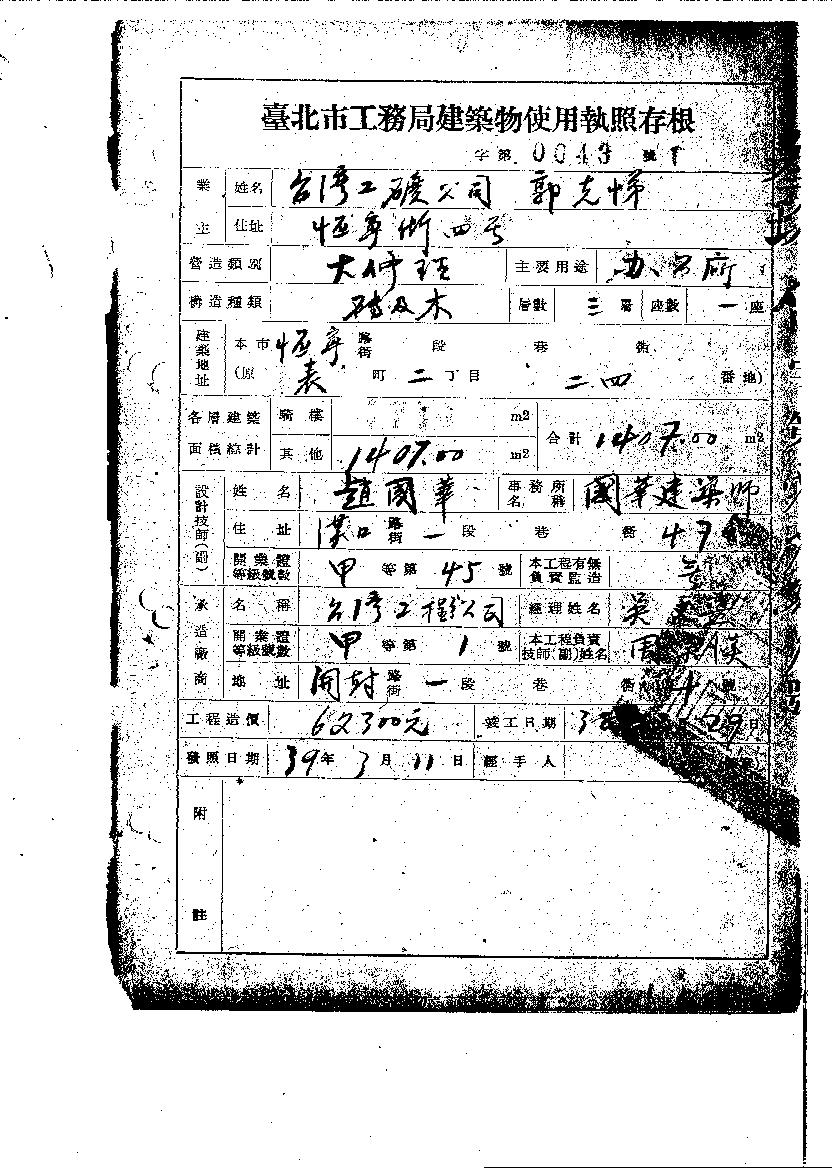 臺北市工務局建築物使用執照存根
字第 0043 號
業主 姓名 台湾工礦公司 郭克悌
住址 恒寧街四号
營造類別 大修理 主要用途 办公所
構造種類 磚及木 層數 三層 座數 一座
建築地址 本市 恒寧 路街 段 巷 衖
(原 表 町 二 丁目 二四 番地)
各層建築面積總計 騎樓 m2 合計 1407.00 m2
其他 1407.00 m2
設計技師(副) 姓名 趙國華 事務所名稱 國華建築師
住址 漢口 路街 一 段 巷 衖 47
開業證等級號數 甲 等第 45 號 本工程有無負責監造
承造廠商 名稱 台湾工程公司 經理姓名 吳
開業證等級號數 甲 等第 1 號 本工程負責技師(副)姓名 周
地址 開封 路街 一 段 巷 衖 號
工程造價 62300元 竣工日期 29日
發照日期 39年 3月 11日 經手人
附註